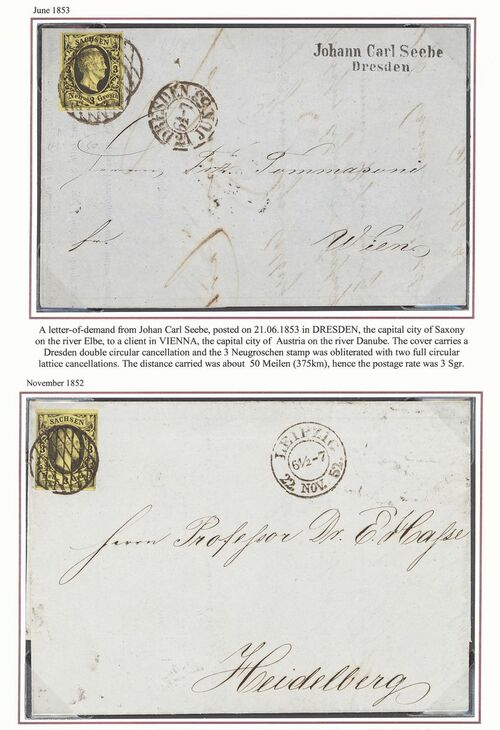 June 1853
SACHSEN
3 3
Neu 3 Grosch
Johann Carl Seebe
Dresden
DRESDEN
Herrn Tommasoni
fr.
Wien
A letter-of-demand from Johan Carl Seebe, posted on 21.06.1853 in DRESDEN, the capital city of Saxony
on the river Elbe, to a client in VIENNA, the capital city of Austria on the river Danube. The cover carries a
Dresden double circular cancellation and the 3 Neugroschen stamp was obliterated with two full circular
lattice cancellations. The distance carried was about 50 Meilen (375km), hence the postage rate was 3 Sgr.
November 1852
SACHSEN
3 3
LEIPZIG
6½-7
22 NOV. 52
Herrn Professor Dr. E. Hasse
Heidelberg